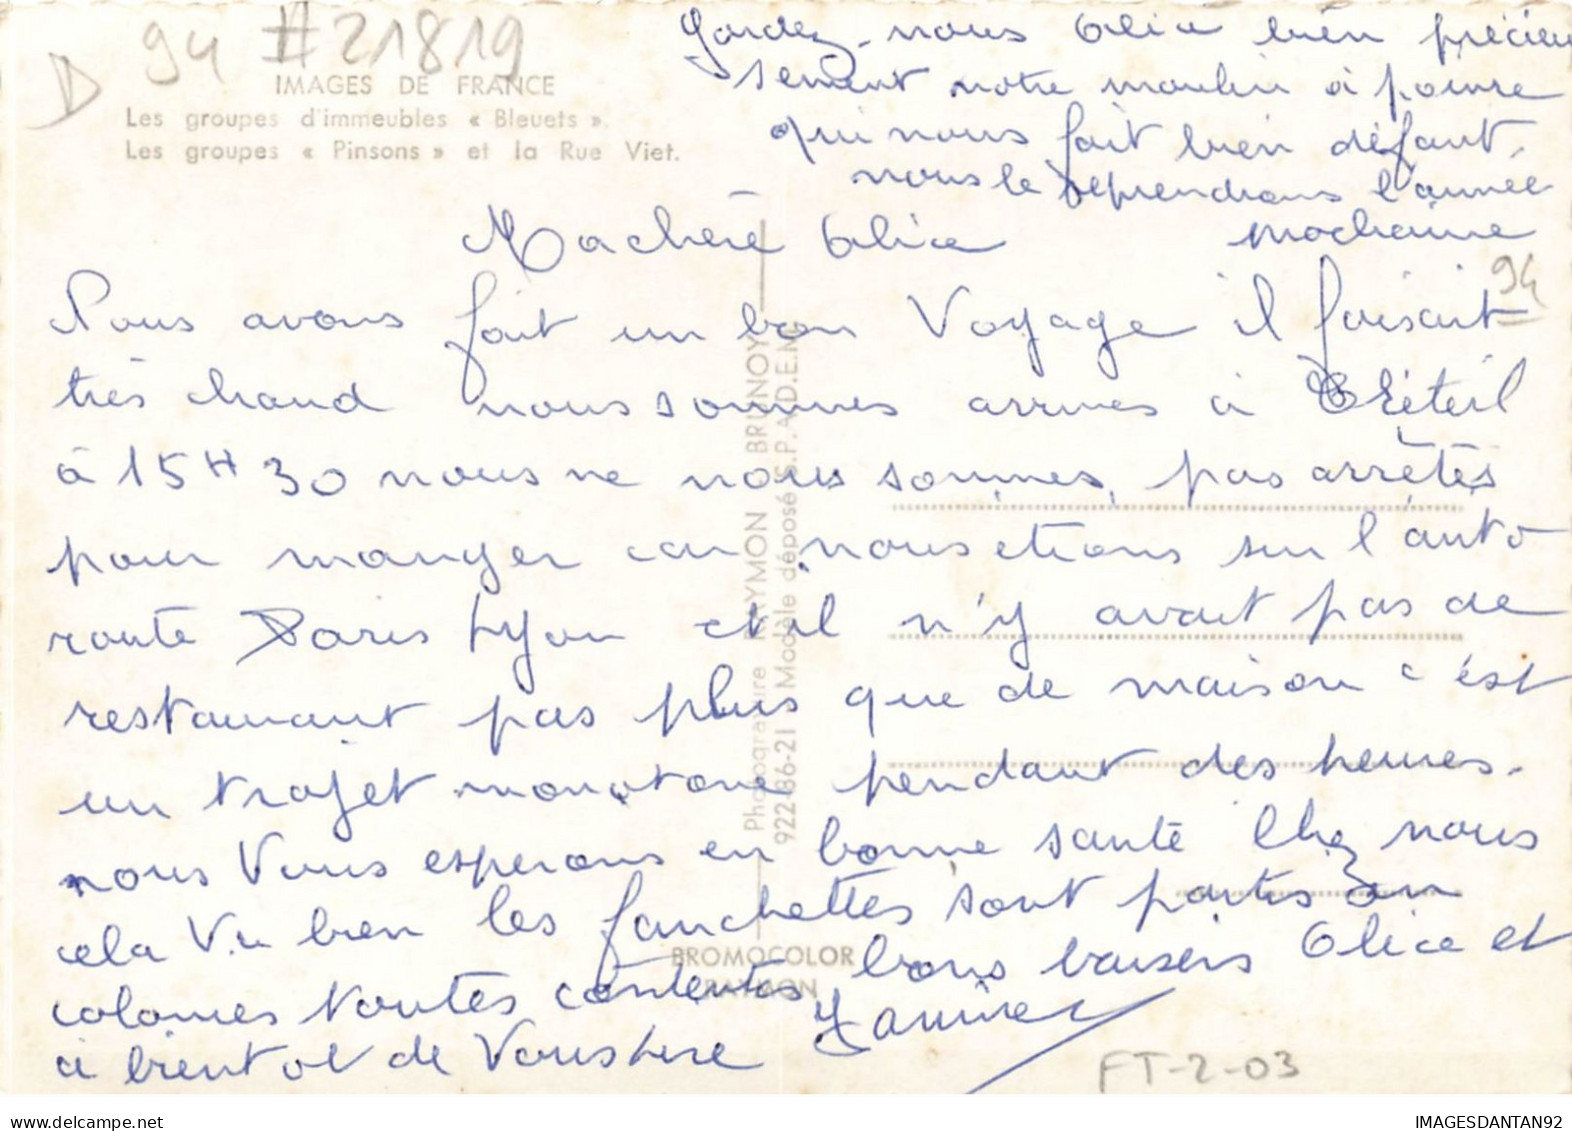 94 #21819
D
IMAGES DE FRANCE
Les groupes d'immeubles « Bleuets ».
Les groupes « Pinsons » et la Rue Viet.
Gardez-nous Alice bien précieu
sement notre moulin à poivre
qui nous fait bien défaut.
nous le reprendrons l'année
prochaine
94
Ma chère Alice
Nous avons fait un bon Voyage il faisait
très chaud nous sommes arrives à Créteil
à 15H30 nous ne nous sommes pas arrêtés
pour manger car nous etions sur l'auto
route Paris Lyon et il n'y avait pas de
restaurant pas plus que de maison c'est
un trajet monotone pendant des heures.
nous Vous esperons en bonne santé Chez nous
cela Va bien les fanchettes sont parties en
colonies toutes contentes bons baisers Alice et
à bientot de Vous lire
Photogravure RAYMON BRUNOY
922-86-21 Modèle déposé S.P.A.D.E.M.
BROMOCOLOR
RAYMON
FT-2-03
IMAGESDANTAN92